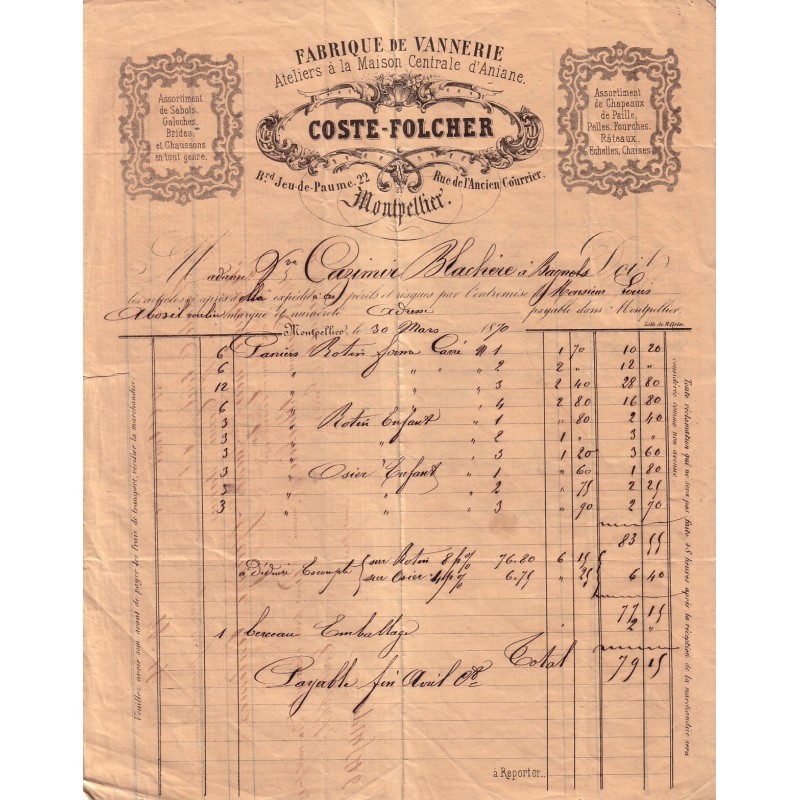 FABRIQUE DE VANNERIE
Ateliers à la Maison Centrale d'Aniane.
COSTE-FOLCHER
Bd. Jeu-de-Paume. 22 et Rue de l'Ancien Courrier.
Montpellier.
Assortiment
de Sabots,
Galoches,
Brides,
et Chaussons
en tout genre.
Assortiment
de Chapeaux
de Paille,
Pelles, Fourches,
Râteaux,
Echelles, Chaises
Madame Vve Cazimir Blachère à Bagnols Doit
les articles ci après expédié à ses périls et risques par l'entremise de Monsieur Louis
marque et numéroté adresse payable dans Montpellier.
Lith. de
Montpellier, le 30 Mars 1870
6 Paniers Rotin forme Carré No 1 1 70 10 20
6 " " " " 2 2 " 12 "
12 " " " 3 2 40 28 80
6 " " " 4 2 80 16 80
3 Rotin Enfant " 1 " 80 2 40
3 " " " 2 1 " 3 "
3 " " " 3 1 20 3 60
3 Osier Enfant " 1 " 60 1 80
3 " " " 2 " 75 2 25
3 " " " 3 " 90 2 70
83 55
à déduire Escompte { sur Rotin 8 p% 76.80 6 15
sur Osier 4 p% 6.75 " 25 } 6 40
77 15
1 berceau Emballage 2 "
Total 79 15
Payable fin Avril
à Reporter..
Veuillez avoir soin avant de payer les frais de transport, vérifier la marchandise.
Toute réclamation qui ne sera pas faite 48 heures après la réception de la marchandise sera
considérée comme non avenue.